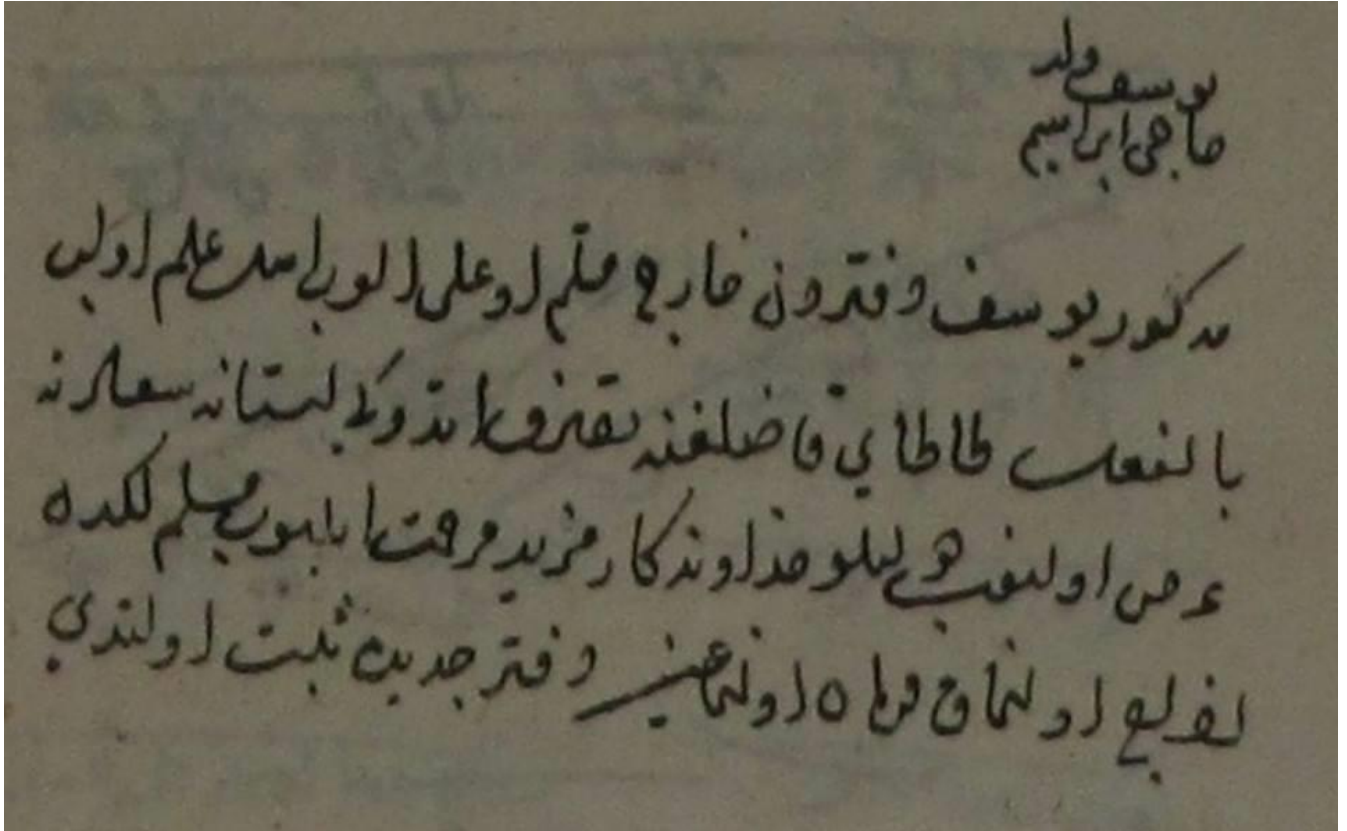 يوسف ولد
حاجى ابراهيم
مذكور يوسف دفتردن خارج مسلم اوغلى اولوب اهل علم اولوب
بالفعل طاطاي قاضلغنه تصرف ايتدوكى آستانه سعادته
عرض اولنوب هويلو خداوندكار مزيد مرحمت ايليوب مسلملكدن
رفع اولنماق فرمان اولنماغين دفتر جديده ثبت اولندي